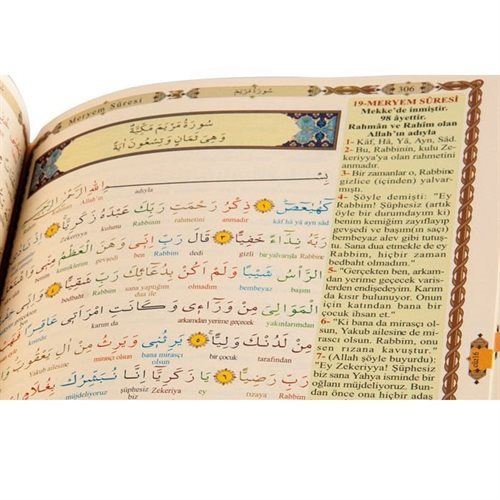 Meryem Sûresi
سُورَةُ مَرْيَمَ
306
سُورَةُ مَرْيَمَ مَكِّيَّةٌ
وَهِيَ ثَمَانٍ وَتِسْعُونَ اٰيَةً
Allah'ın adıyla
كٓهٰيٰعٓصٓ ﴿١﴾ ذِكْرُ رَحْمَتِ رَبِّكَ عَبْدَهُ زَكَرِيَّا
kâf hâ yâ ayn sâd anmadır rahmetini Rabbinin kulunu Zekeriyya
رَبَّهُ نِدَٓاءً خَفِيًّا ﴿٣﴾ قَالَ رَبِّ اِنّ۪ي وَهَنَ الْعَظْمُ
Rabbine bir yalvarışla gizli dedi Rabbim ben gevşedi kemik
الرَّأْسُ شَيْبًا وَلَمْ اَكُنْ بِدُعَٓائِكَ رَبِّ شَقِيًّا
başım bembeyaz olmadım sana yaptığım dua ile Rabbim bedbaht
الْمَوَالِيَ مِنْ وَرَٓاء۪ي وَكَانَتِ امْرَاَت۪ي عَاقِرًا
yakınlarımdan arkamdan yerime geçecek karım da
مِنْ لَدُنْكَ وَلِيًّا ﴿٥﴾ يَرِثُن۪ي وَيَرِثُ مِنْ اٰلِ يَعْقُوبَ
tarafından bir çocuk bana mirasçı olsun mirasçı olsun Yakub ailesine
رَبِّ رَضِيًّا ﴿٦﴾ يَا زَكَرِيَّٓا اِنَّا نُبَشِّرُكَ بِغُلَامٍ
Rabbim rızaya ey Zekeriyya şüphesiz biz sana müjdeliyoruz
19-MERYEM SÛRESİ
Mekke'de inmiştir.
98 âyettir.
Rahmân ve Rahîm olan
Allah'ın adıyla
1- Kâf, Hâ, Yâ, Ayn, Sâd.
2- Bu, Rabbinin, kulu Ze-
keriyya'ya olan rahmetini
anmadır.
3- Bir zamanlar o, Rabbine
gizlice (içinden) yalvar-
mıştı.
4- Şöyle demişti: "Ey
Rabbim! Şüphesiz (artık
öyle bir durumdayım ki)
benim kemiğim zayıflayıp
gevşedi ve başım(ın saçı)
bembeyaz alev gibi tutuş-
tu. Sana dua etmekle de ey
Rabbim, hiçbir zaman
bedbaht olmadım."
5- "Gerçekten ben, arkam-
dan yerime geçecek varis-
lerden endişedeyim. Karım
da kısır bulunuyor. Onun
için katından bana bir
çocuk ihsan et."
6- "Ki bana da mirasçı ol-
sun, Yakub ailesine de mi-
rasçı olsun. Rabbim, onu
sen rızana kavuştur."
7- (Allah şöyle buyurdu:)
"Ey Zekeriyya! Şüphesiz
biz sana Yahya isminde bir
oğlanı müjdeliyoruz. Bun-
dan önce ona hiçbir adaş